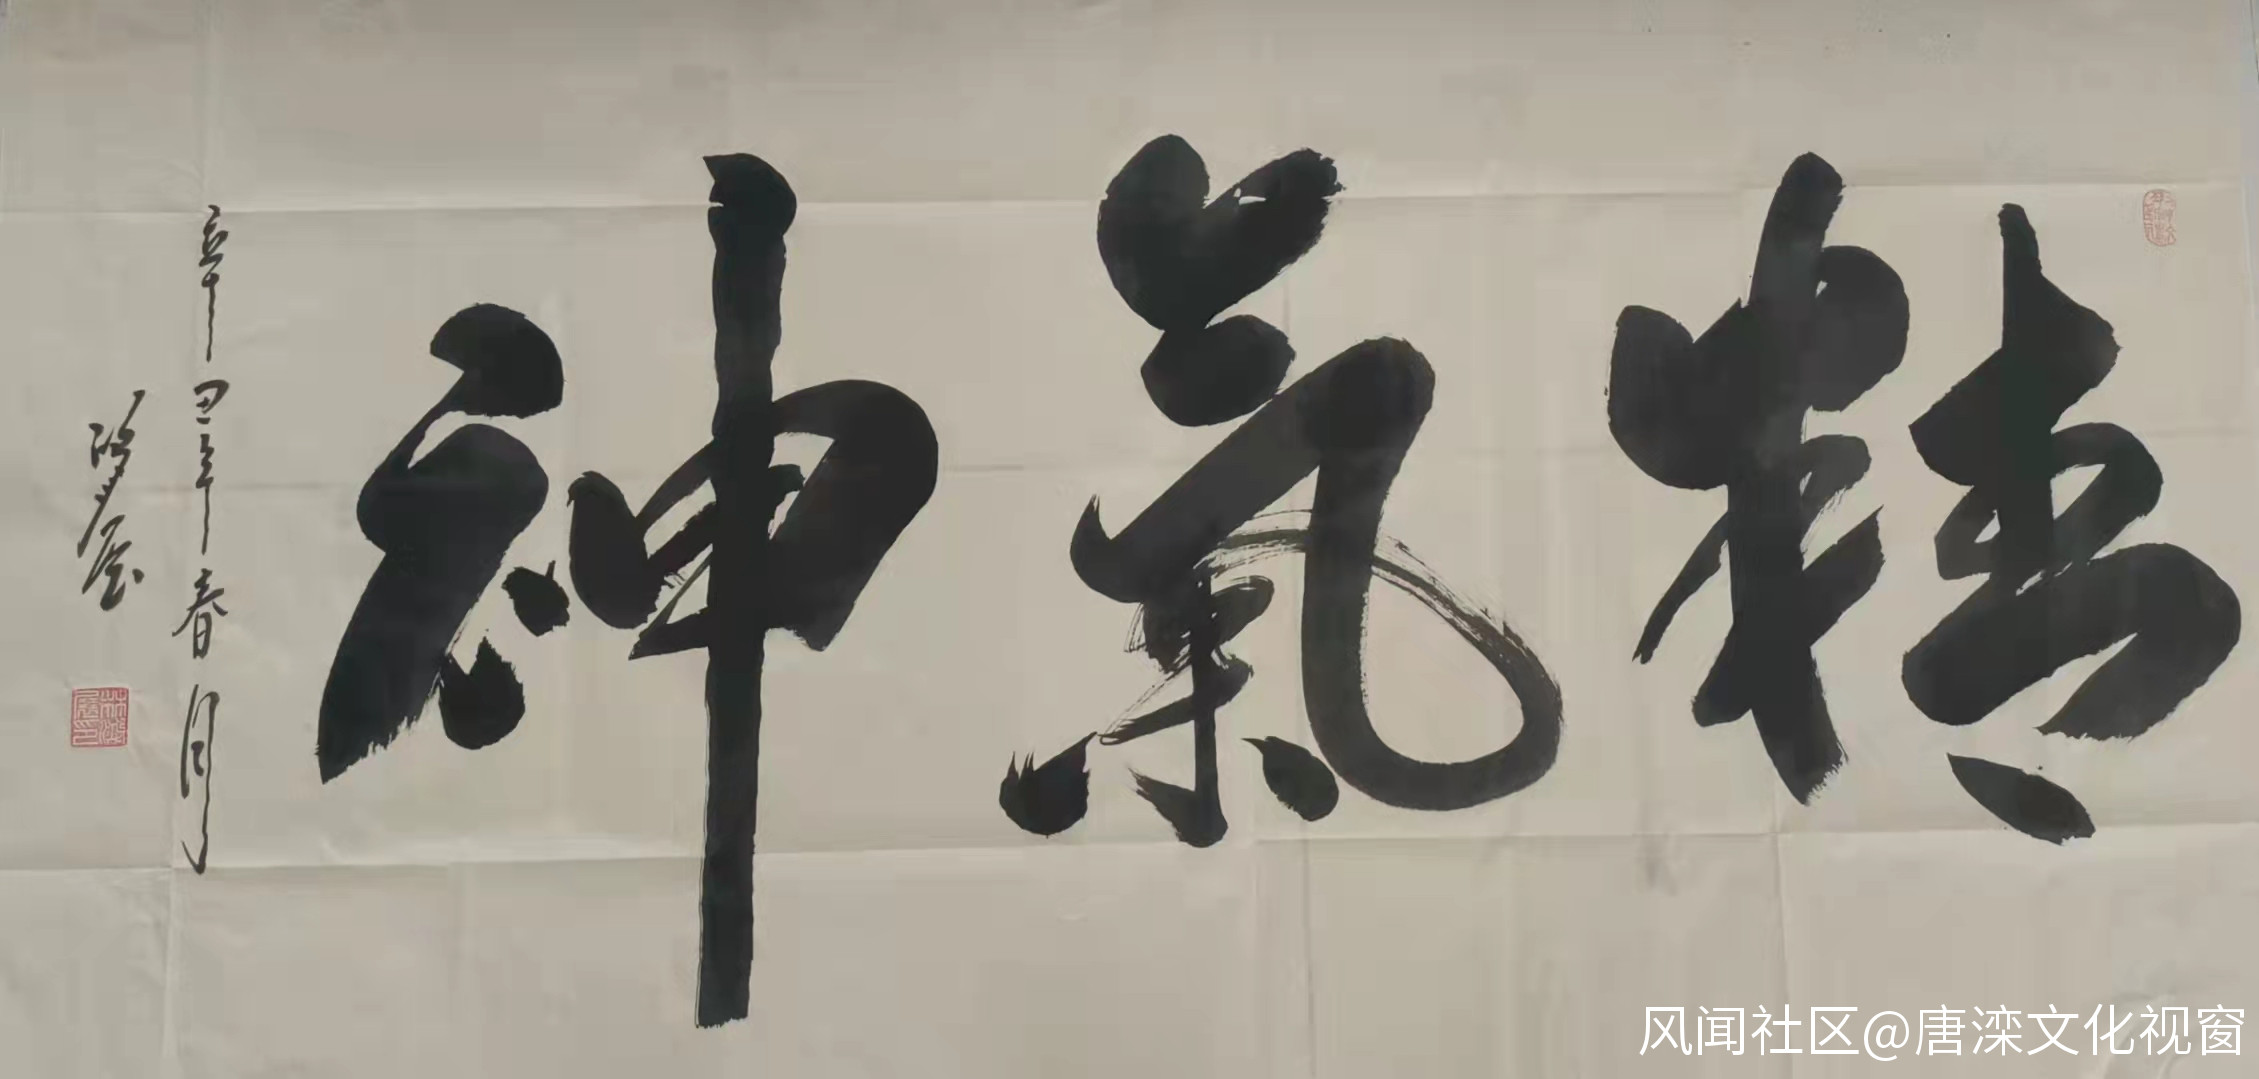 精氣神
辛丑年春月
风闻社区@唐滦文化视窗